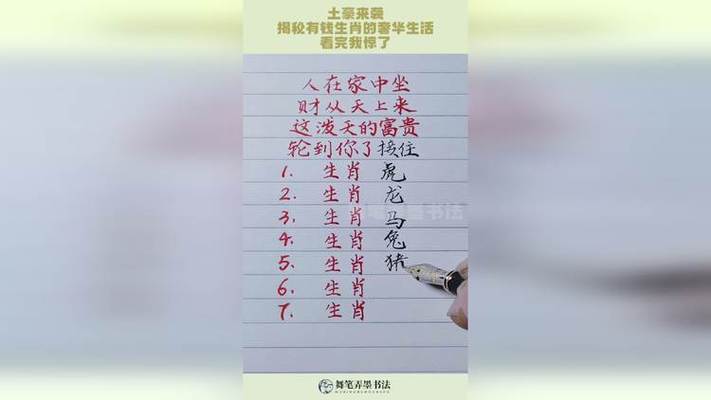 土豪来袭
揭秘有钱生肖的奢华生活
看完我惊了
人在家中坐
财从天上来
这泼天的富贵
轮到你了接住
1. 生肖 虎
2. 生肖 龙
3. 生肖 马
4. 生肖 兔
5. 生肖 猪
6. 生肖
7. 生肖
舞笔弄墨书法